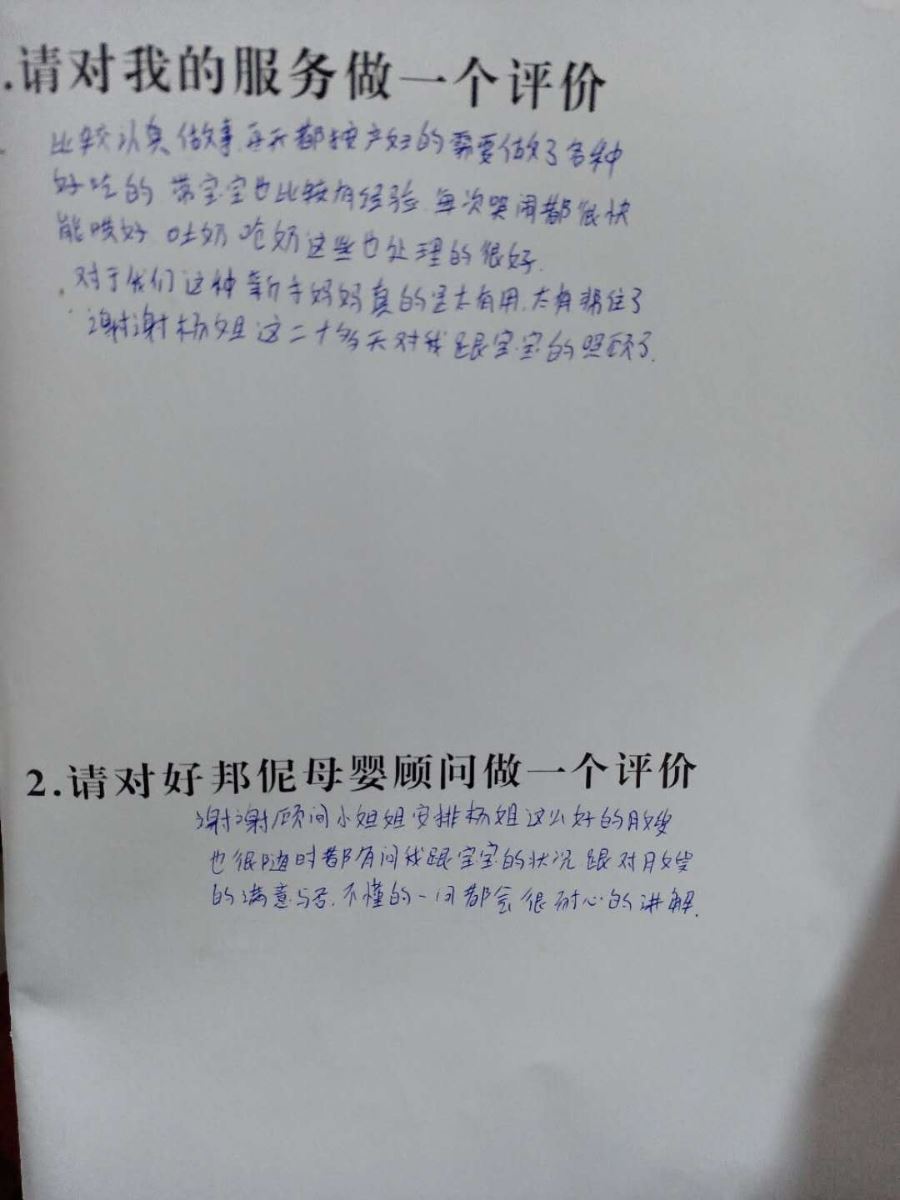 .请对我的服务做一个评价
比较认真做事,每天都按产妇的需要做了各种
好吃的 带宝宝也比较有经验,每次哭闹都很快
能哄好 吐奶 呛奶这些也处理的很好.
对于我们这种新手妈妈真的是太有用,太有帮住了
谢谢杨姐这二十多天对我跟宝宝的照顾了.
2.请对好邦伲母婴顾问做一个评价
谢谢顾问小姐姐安排杨姐这么好的月嫂
也很随时都有问我跟宝宝的状况 跟对月嫂
的满意与否,不懂的一问都会很耐心的讲解.